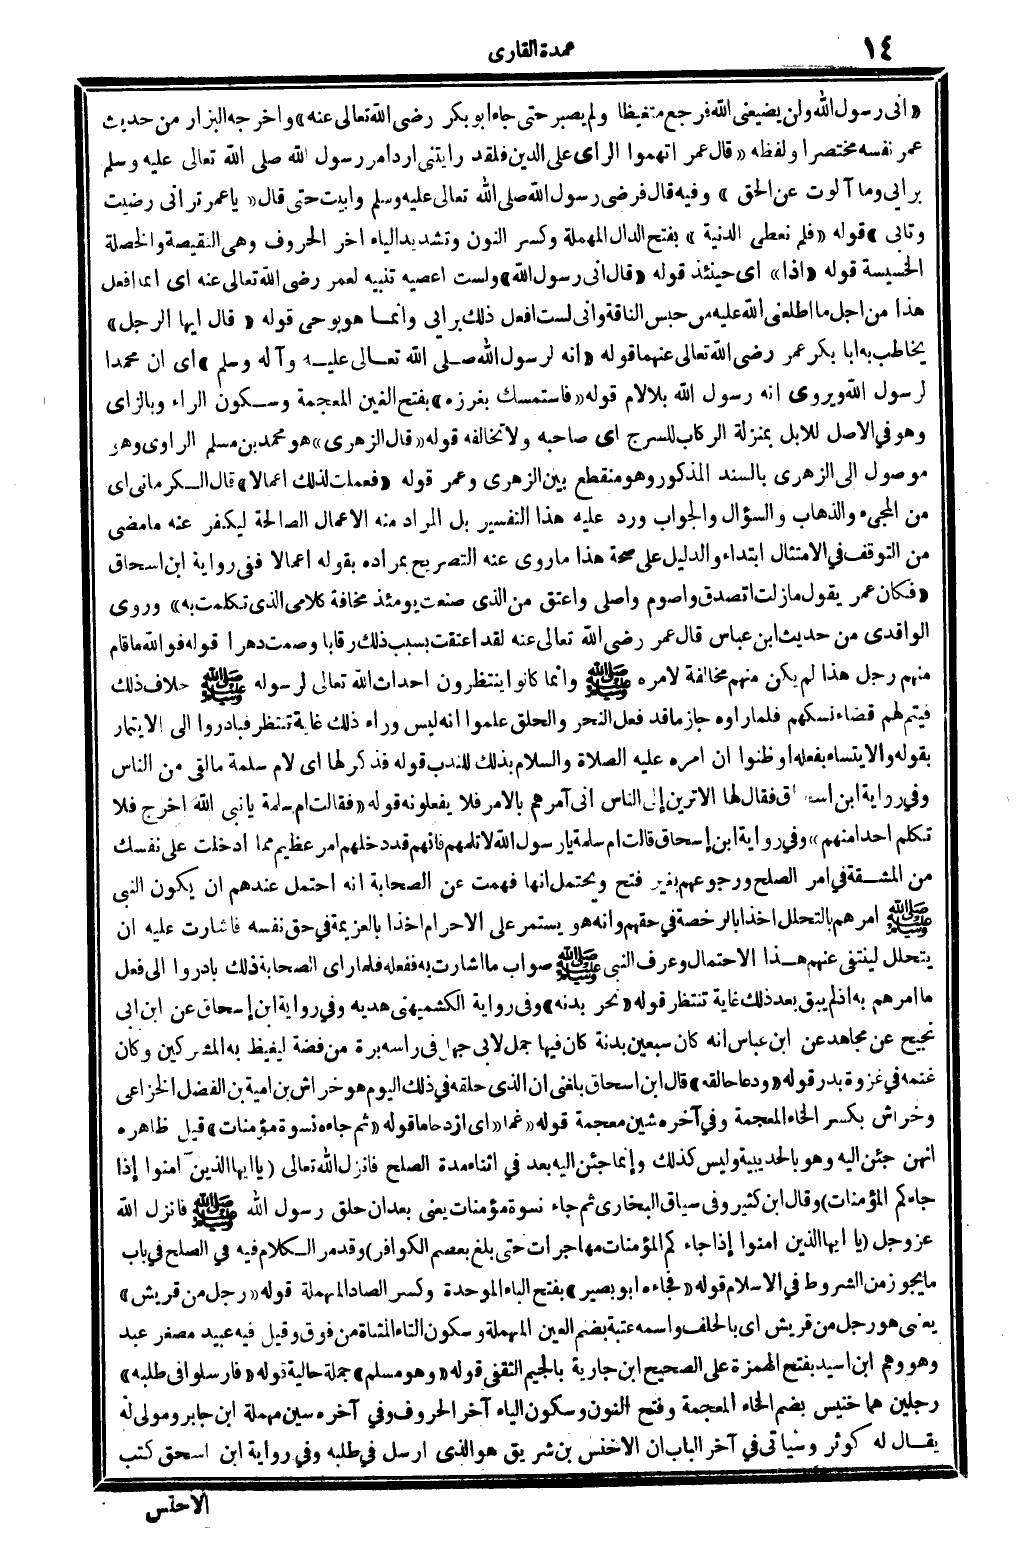 ١٤
عمدة القارى
« انى رسول الله ولن يضيعنى الله فرجع متغيظا ولم يصبر حتى جاء ابو بكر رضى الله تعالى عنه » واخرجه البزار من حديث
عمر نفسه مختصرا ولفظه « قال عمر اتهموا الراى على الدين فلقد رايتنى ارد امر رسول الله صلى الله تعالى عليه وسلم
برابي وما آلوت عن الحق » وفيه قال فرضى رسول الله صلى الله تعالى عليه وسلم وابيت حتى قال « ياعمر ترانى رضيت
وتابى » قوله « فلم نعطى الدنية » بفتح الدال المهملة وكسر النون وتشديد الياء اخر الحروف وهى النقيصة والخصلة
الخسيسة قوله « اذا » اى حينئذ قوله « قال انى رسول الله » ولست اعصيه تنبيه لعمر رضى الله تعالى عنه اى انما افعل
هذا من اجل ما اطلعنى الله عليه من حبس الناقة وانى لست افعل ذلك برابي وانمـا هو بوحى قوله « قال ايها الرجل »
يخاطب به ابا بكر عمر رضى الله تعالى عنهما قوله « انه لرسول الله صلـى الله تعـالى عليـه وآله وسلم » اى ان محمدا
لرسول الله ويروى انه رسول الله بلالام قوله « فاستمسك بغرزه » بفتح الغين المعجمة وسـكون الراء وبالزاى
وهو في الاصل للابل بمنزلة الركاب للسرج اى صاحبه ولا تخالفه قوله « قال الزهرى » هو محمد بن مسلم الراوى وهو
موصول الى الزهرى بالسند المذكور وهو منقطع بين الزهرى وعمر قوله « فعملت لذلك اعمالا » قال الـكرمانى اى
من المجىء والذهاب والسؤال والجواب ورد عليه هذا التفسير بل المراد منه الاعمال الصالحة ليكفر عنه مامضى
من التوقف في الامتثال ابتداء والدليل على صحة هذا ماروى عنه التصريح بمراده بقوله اعمالا ففى رواية ابن اسحاق
« فكان عمر يقول مازلت اتصدق واصوم واصلى واعتق من الذى صنعت يومئذ مخافة كلامى الذى تكلمت به » وروى
الواقدى من حديث ابن عباس قال عمر رضى الله تعالى عنه لقد اعتقت بسبب ذلك رقابا وصمت دهرا قوله فو الله ماقام
منهم رجل هذا لم يكن منهم مخالفة لامره ﷺ وانما كانوا ينتظرون احداث الله تعالى لرسوله ﷺ خلاف ذلك
فيتم لهم قضاء نسكهم فلما راوه جازما قد فعل النحر والحلق علموا انه ليس وراء ذلك غاية تنتظر فبادروا الى الايتمار
بقوله والايتساء بفعله او ظنوا ان امره عليه الصلاة والسلام بذلك للندب قوله فذكر لها اى لام سلمة مالقى من الناس
وفي رواية ابن اسحاق فقال لها الا ترين إلى الناس انى آمرهم بالامر فلا يفعلونه قوله « فقالت ام سلمة يا نبى الله اخرج فلا
تكلم احدا منهم » وفي رواية ابن إسحاق قالت ام سلمة يارسول الله لا تلمهم فانهم قد دخلهم امر عظيم مما ادخلت على نفسك
من المشـقة في امر الصلح ورجوعهم بغير فتح ويحتمل انها فهمت عن الصحابة انه احتمل عندهم ان يكون النبى
ﷺ امرهم بالتحلل اخذا بالرخصة في حقهم وانه هو يستمر على الاحرام اخذا بالعزيمة في حق نفسه فاشارت عليه ان
يتحلل لينتفى عنهم هـذا الاحتمال وعرف النبى ﷺ صواب ما اشارت به ففعله فلما راى الصحابة ذلك بادروا الى فعل
ما امرهم به اذ لم يبق بعد ذلك غاية تنتظر قوله « نحر بدنه » وفى رواية الكشميهنى هديه وفي رواية ابن إسحاق عن ابن ابى
نجيح عن مجاهد عن ابن عباس انه كان سبعين بدنة كان فيها جمل لابى جهل فى راسه برة من فضة ليغيظ به المشركين وكان
غنمه في غزوة بدر قوله « ودعا حالقه » قال ابن اسحاق بلغنى ان الذى حلقه في ذلك اليوم هو خراش بن امية بن الفضل الخزاعى
وخراش بكسر الخاء المعجمة وفي آخره شين معجمة قوله « غما » اى ازدحاما قوله « ثم جاءه نسوة مؤمنات » قيل ظاهره
انهن جئن اليه وهو بالحديبية وليس كذلك وإنما جئن اليه بعد في اثناء مدة الصلح فانزل الله تعالى ( يا ايها الذين آمنوا إذا
جاءكم المؤمنات) وقال ابن كثير وفى سياق البخارى ثم جاء نسوة مؤمنات يعنى بعد ان حلق رسول الله ﷺ فانزل الله
عز وجل ( يا ايها الذين امنوا إذا جاءكم المؤمنات مهاجرات حتى بلغ بعصم الكوافر) وقد مر الـكلام فيه في الصلح في باب
مايجوز من الشروط في الاسلام قوله « فجاءه ابو بصير » بفتح الباء الموحدة وكسر الصاد المهملة قوله « رجل من قريش »
يعنى هو رجل من قريش اى بالحلف واسمه عتبة بضم العين المهملة وسكون التاء المثناة من فوق وقيل فيه عبيد مصغر عبد
وهو وهم ابن اسيد بفتح الهمزة على الصحيح ابن جارية بالجيم الثقفى قوله « وهو مسلم » جملة حالية قوله « فارسلوا فى طلبه »
رجلين هما خنيس بضم الخاء المعجمة وفتح النون وسكون الياء آخر الحروف وفي آخره سين مهملة ابن جابر ومولى له
يقـال له كوثر وسياتى في آخر الباب ان الاخنس بن شريق هو الذى ارسل في طلبه وفي رواية ابن اسحق كتب
الاخنس